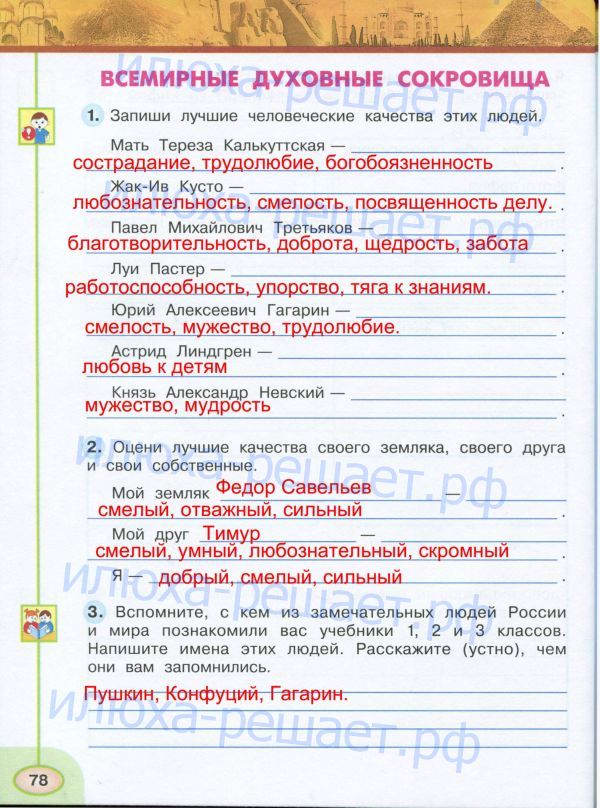 ВСЕМИРНЫЕ ДУХОВНЫЕ СОКРОВИЩА
1. Запиши лучшие человеческие качества этих людей.
Мать Тереза Калькуттская —
сострадание, трудолюбие, богобоязненность
Жак-Ив Кусто —
любознательность, смелость, посвященность делу.
Павел Михайлович Третьяков —
благотворительность, доброта, щедрость, забота
Луи Пастер —
работоспособность, упорство, тяга к знаниям.
Юрий Алексеевич Гагарин —
смелость, мужество, трудолюбие.
Астрид Линдгрен —
любовь к детям
Князь Александр Невский —
мужество, мудрость
2. Оцени лучшие качества своего земляка, своего друга
и свои собственные.
Мой земляк Федор Савельев —
смелый, отважный, сильный
Мой друг Тимур —
смелый, умный, любознательный, скромный
Я — добрый, смелый, сильный
3. Вспомните, с кем из замечательных людей России
и мира познакомили вас учебники 1, 2 и 3 классов.
Напишите имена этих людей. Расскажите (устно), чем
они вам запомнились.
Пушкин, Конфуций, Гагарин.
78
илюха-решает.рф
илюха-решает.рф
илюха-решает.рф
илюха-решает.рф
илюха-решает.рф
илюха-решает.рф